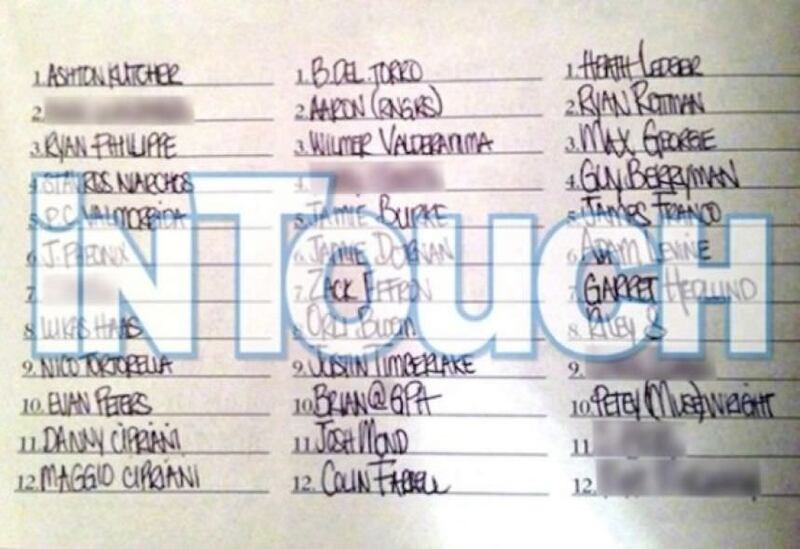 1. ASHTON KUTCHER
2.
3. RYAN PHILIPPE
4. STAVROS NIARCHOS
5. P.C. VALMORBIDA
6. J. PHEONIX
7.
8. LUKAS HAAS
9. NICO TORTORELLA
10. EVAN PETERS
11. DANNY CIPRIANI
12. MAGGIO CIPRIANI
1. B. DEL TORRO
2. AARON (RNGRS)
3. WILMER VALDERAMMA
4.
5. JAMIE BURKE
6. JAMIE DORNAN
7. ZACK EFFRON
8. ORLI BLOOM
9. JUSTIN TIMBERLAKE
10. BRIAN @ GPA
11. JOSH MOND
12. COLIN FARRELL
1. HEATH LEDGER
2. RYAN ROTTMAN
3. MAX GEORGE
4. GUY BERRYMAN
5. JAMES FRANCO
6. ADAM LEVINE
7. GARRET HEDLUND
8. RILEY S
9.
10. PETEY (MUSE) WRIGHT
11.
12.
INTOUCH